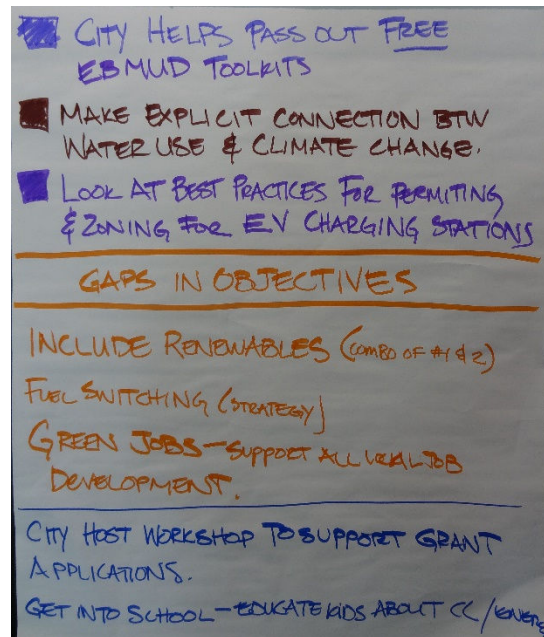 CITY HELPS PASS OUT FREE
EBMUD TOOLKITS
MAKE EXPLICIT CONNECTION BTW
WATER USE & CLIMATE CHANGE.
LOOK AT BEST PRACTICES FOR PERMITING
& ZONING FOR EV CHARGING STATIONS
GAPS IN OBJECTIVES
INCLUDE RENEWABLES (COMBO OF #1 & 2)
FUEL SWITCHING (STRATEGY)
GREEN JOBS - SUPPORT ALL LOCAL JOB
DEVELOPMENT.
CITY HOST WORKSHOP TO SUPPORT GRANT
APPLICATIONS.
GET INTO SCHOOL - EDUCATE KIDS ABOUT CC /